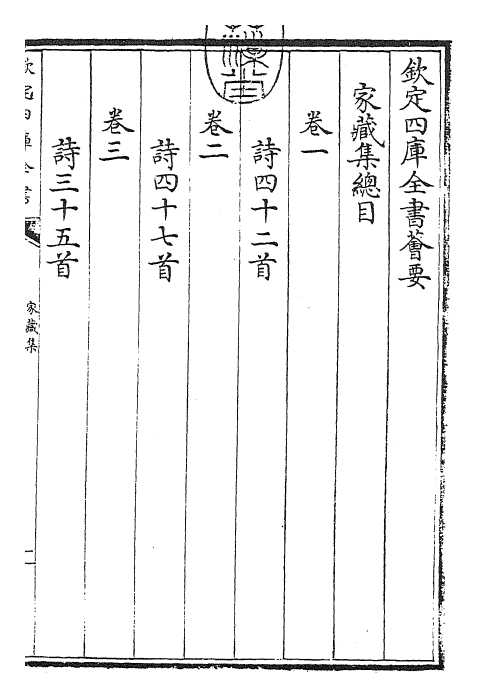 欽定四庫全書薈要
家藏集總目
卷一
詩四十二首
卷二
詩四十七首
卷三
詩三十五首
欽定四庫全書
家藏集